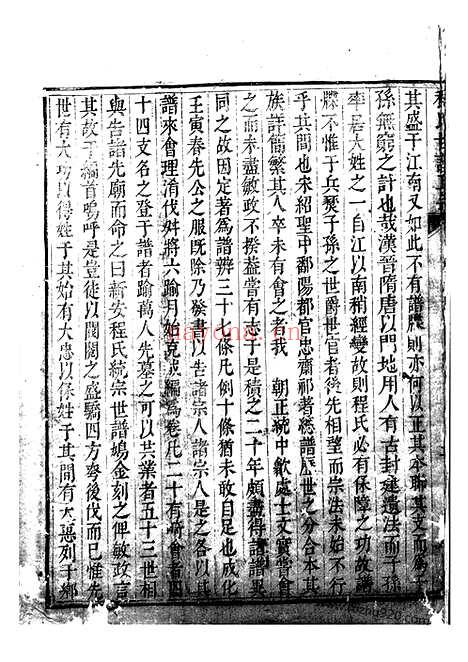 其盛于江南又如此不有譜牒則亦何以正其本聯其支而爲子
孫無窮之計也哉漢晉隋唐以門地用人有古封建遺法而子孫
率居大姓之一自江以南稍經變故則程氏必有保障之功故譜
牒不惟于兵燹子孫之世爵世官者後先相望而宗法未始不行
乎其間也宋紹聖中鄱陽都官忠肅祁耆總譜歷世之分合本其
族詳簡繁其人卒未有會之者我 朝正統中歙處士文實嘗會
之而未盡敏政不揆益嘗有志于是積之二十年頗盡得諸譜異
同之故因定著爲譜辨三十七條凡例十條猶未敢自足也成化
王寅春先公之服既除乃發書以告諸宗人諸宗人是之各以其
譜來會理淆伐舛將六踰月始克成編爲卷凡二十有 會者四
十四支名之登于譜者踰萬人先墓之可以共業者五十三世相
與告諸先廟而命之曰新安程氏統宗世譜鳩金刻之俾敏政言
其故于編首嗚呼是豈徒以閥閱之盛驕四方夸後伐而已惟先
世有大功以得姓于其始有大忠以保姓于其間有大惠列于鄉
nayona.cn